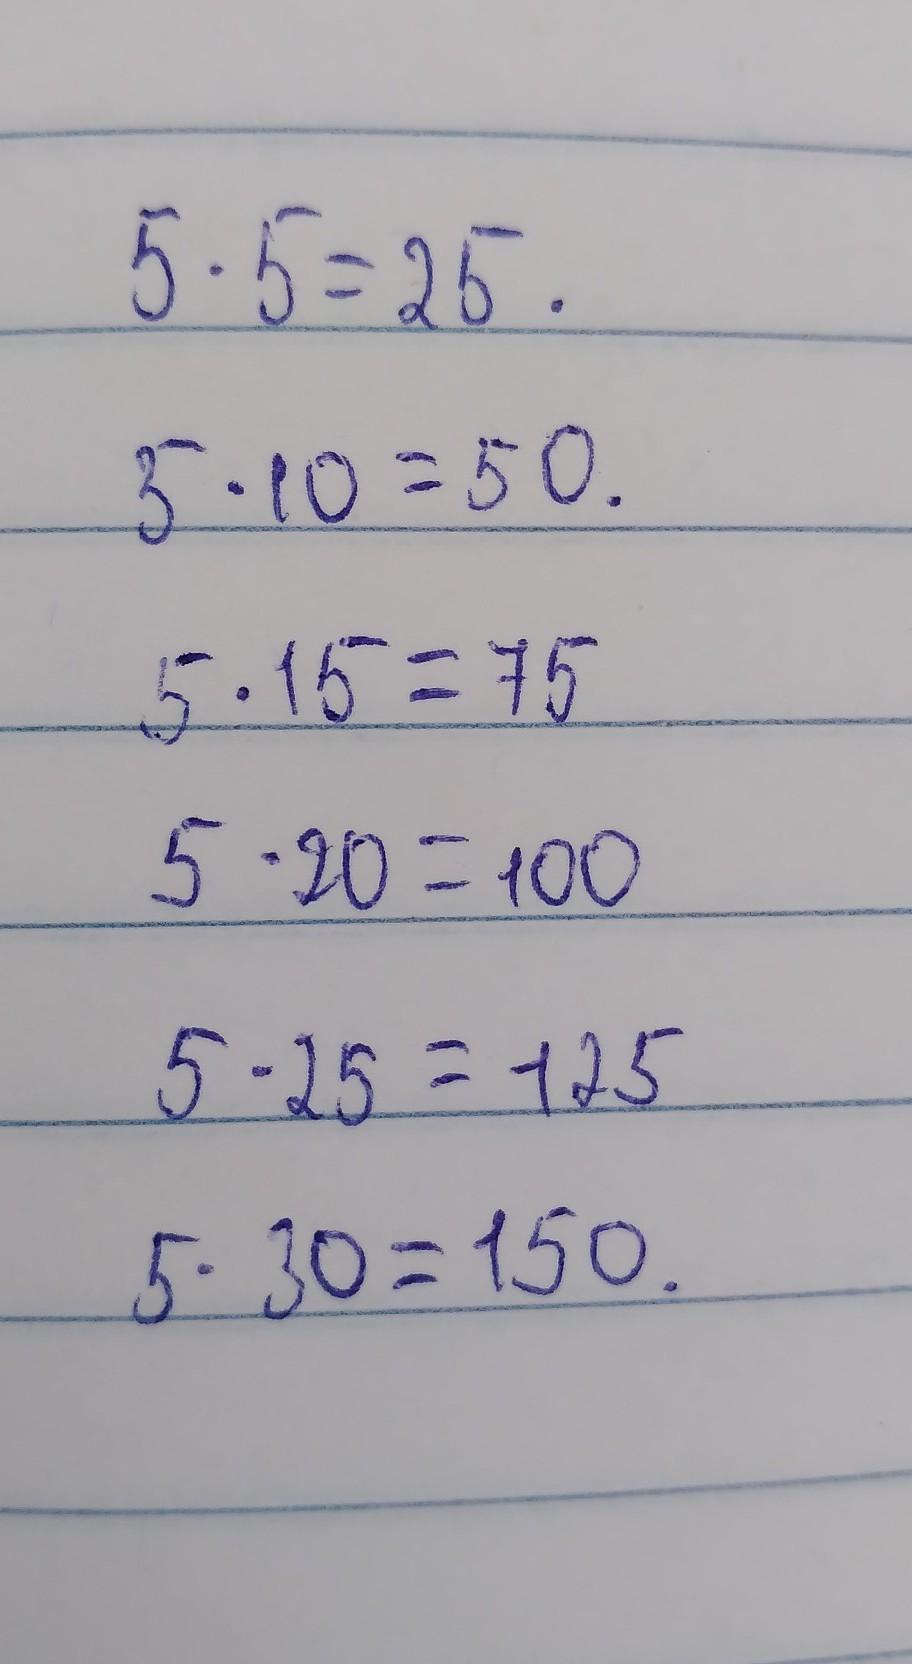 5 · 5 = 25.
5 · 10 = 50.
5 · 15 = 75
5 · 20 = 100
5 · 25 = 125
5 · 30 = 150.